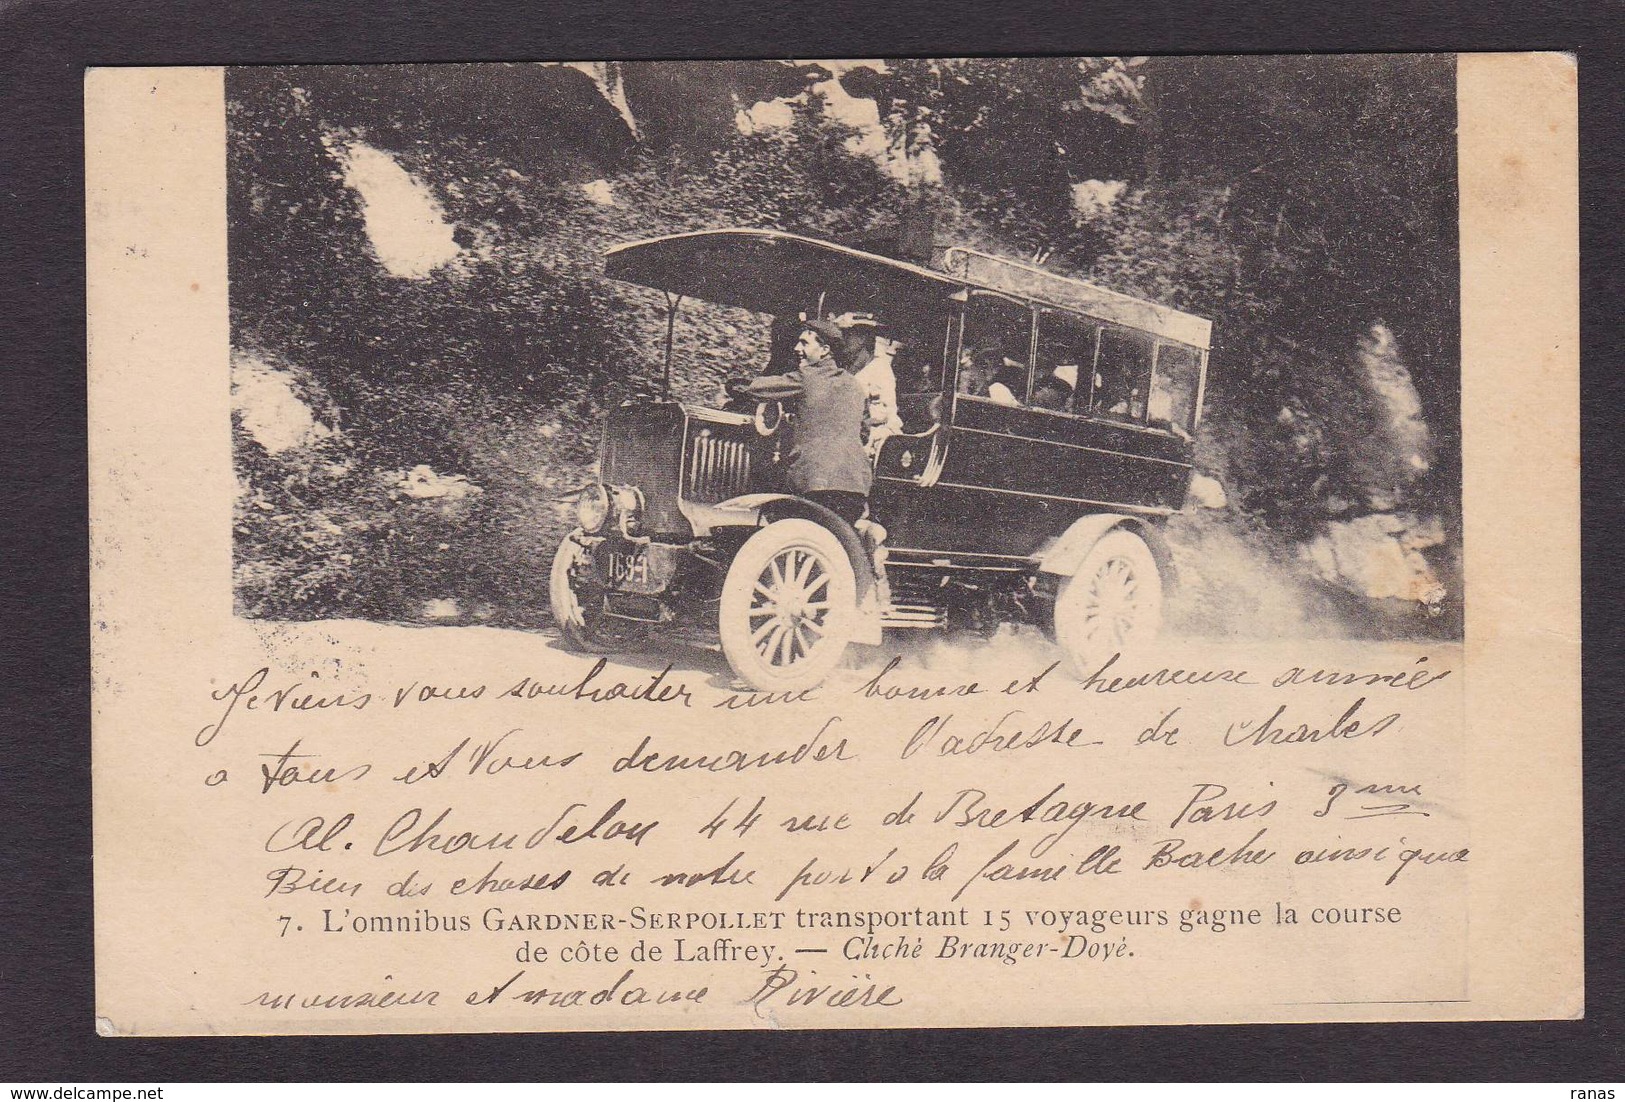 1694
Je viens vous souhaiter une bonne et heureuse année
a tous et Vous demander l'adresse de Charles
Al. Chaudelou 44 rue de Bretagne Paris 3me
Bien des choses de notre part a la famille Bache ainsi que
7. L'omnibus GARDNER-SERPOLLET transportant 15 voyageurs gagne la course
de côte de Laffrey. — Cliché Branger-Doyé.
monsieur et madame Rivière
ranas